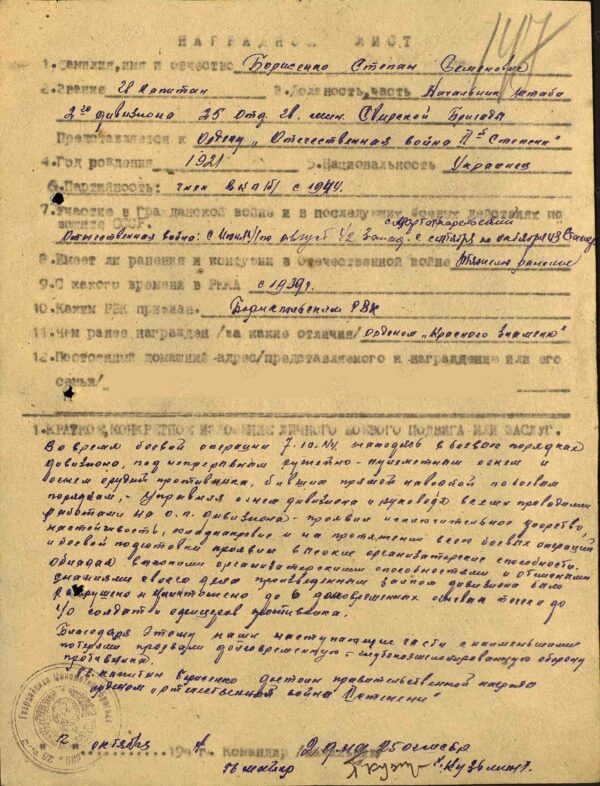 147
НАГРАДНОЙ ЛИСТ
1. Фамилия, имя и отчество Борисенко Степан Семенович
2. Звание Гв Капитан 3. Должность, часть Начальник штаба
2го дивизиона 25 отд. Гв. мин. Свирской Бригады
Представляется к Ордену "Отечественная война II й Степени"
4. Год рождения 1921 5. Национальность Украинец
6. Партийность: член ВКП/б/ с 1944.
7. Участие в Гражданской войне и в последующих боевых действиях по
защите СССР.
Отечественная война: с по август 42 Запад. с сентября по
8. Имеет ли ранения и контузии в отечественной войне тяжело ранение
9. С какого времени в РККА с 1939г.
10. Каким РВК призван. РВК
11. Чем ранее награжден /за какие отличия/ орденом "Красного Знамени"
12. Постоянный домашний адрес/представляемого к награждению или его
семьи/
1. КРАТКОЕ, КОНКРЕТНОЕ ИЗЛОЖЕНИЕ ЛИЧНОГО БОЕВОГО ПОДВИГА ИЛИ ЗАСЛУГ.
Во время боевой операции 7.10.44. находясь в боевых порядках
дивизиона, под непрерывным ружейно-пулеметным огнем и
огнем орудий противника, бивших прямой наводкой по боевым
порядкам, - Управляя огнем дивизиона и руководя всеми проводимыми
работами на о.п. дивизиона - проявил исключительное упорство,
настойчивость, хладнокровие и на протяжении всей боевых операций
и боевой подготовки проявил высокие организаторские способности.
Обладая высокими организаторскими способностями и отличными
знаниями своего дела произведенным залпом дивизиона было
разрушено и уничтожено до 6 долговременных огневых точек до
40 солдат и офицеров противника.
Благодаря этому наши наступающие части с наименьшими
потерями прорвали долговременную - глубокоэшелонированную оборону
противника.
Гв. капитан Борисенко достоин правительственной награды
орденом "отечественная война II степени"
12 октября 1944 г. Командир 2 д-на 25
Гв майор